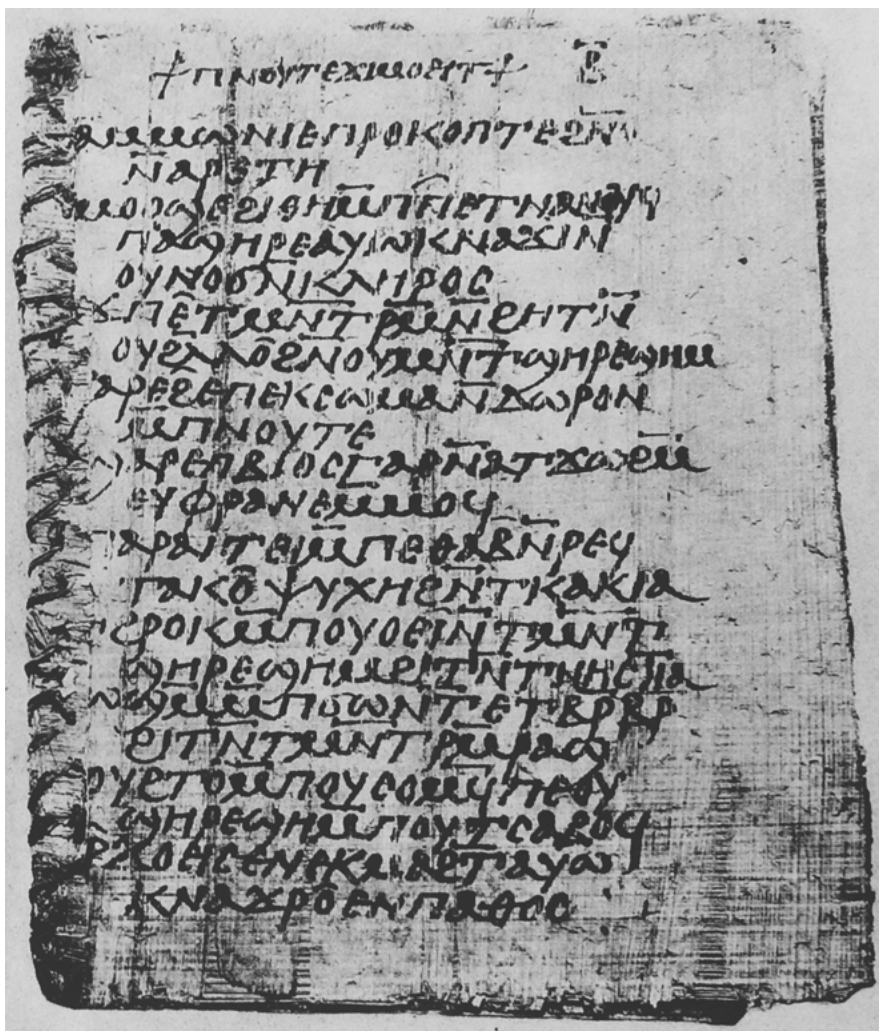 ϯⲡⲛⲟⲩⲧⲉϫⲓⲙⲟⲉⲓⲧϯ ⲃ̅
ⲁⲙⲙⲱⲛⲓⲉⲡⲣⲟⲕⲟⲡⲧⲉϩⲛ̅
ⲛ̅ⲁⲣⲉⲧⲏ
ⲙⲟⲟϣⲉϩⲓⲑⲏⲙ̅ⲡ̅ⲡⲉⲧⲛⲁⲛⲟⲩϥ
ⲡⲁϣⲏⲣⲉⲁⲩⲱⲕⲛⲁϫⲓⲛ
ⲟⲩⲛⲟϭⲛ̅ⲕⲗⲏⲣⲟⲥ
ϫⲡⲉⲧⲙⲛ̅ⲧⲣⲙ̅ⲛ̅ϩⲏⲧⲛ̅
ⲟⲩϩⲗⲗⲟϩⲛ̅ⲟⲩⲙⲛ̅ⲧϣⲏⲣⲉϣⲏⲙ
ϩⲁⲣⲉϩⲉⲡⲉⲕⲥⲱⲙⲁⲛ̅ⲇⲱⲣⲟⲛ
ⲙ̅ⲡⲛⲟⲩⲧⲉ
ⲙⲁⲣⲉⲡⲃⲓⲟⲥⲅⲁⲣⲛ̅ⲁⲧϫⲱϩⲙ̅
ⲉⲩⲫⲣⲁⲛⲉⲙ̅ⲙⲟϥ
ⲡⲁⲣⲁⲓⲧⲉⲓⲙ̅ⲡⲉⲑⲁⲃⲛ̅ⲣⲉϥ
ⲧⲁⲕⲟⲯⲩⲭⲏϩⲛ̅ⲧⲕⲁⲕⲓⲁ
ϫⲉⲣⲟⲕⲙ̅ⲡⲟⲩⲟⲉⲓⲛ̅ⲧⲙⲛ̅ⲧ
ϣⲏⲣⲉϣⲏⲙϩⲓⲧⲛ̅ⲧⲛⲏⲥⲧⲓⲁ
ⲱϣⲙ̅ⲙ̅ⲡϭⲱⲛⲧ̅ⲉⲧⲃⲣ̅ⲃⲣ̅
ϩⲓⲧⲛ̅ⲧⲙⲛ̅ⲧⲣⲙ̅ⲣⲁϣ
ⲟⲩϩⲧⲟⲙ̅ⲡⲟⲩⲉⲟⲙ̅ϥⲡⲉⲟⲩ
ϣⲏⲣⲉϣⲏⲙⲙ̅ⲡⲟⲩⲧⲥⲁⲃⲟϥ
ⲕⲛⲁϫⲣⲟⲉⲛⲡⲁⲑⲟⲥ